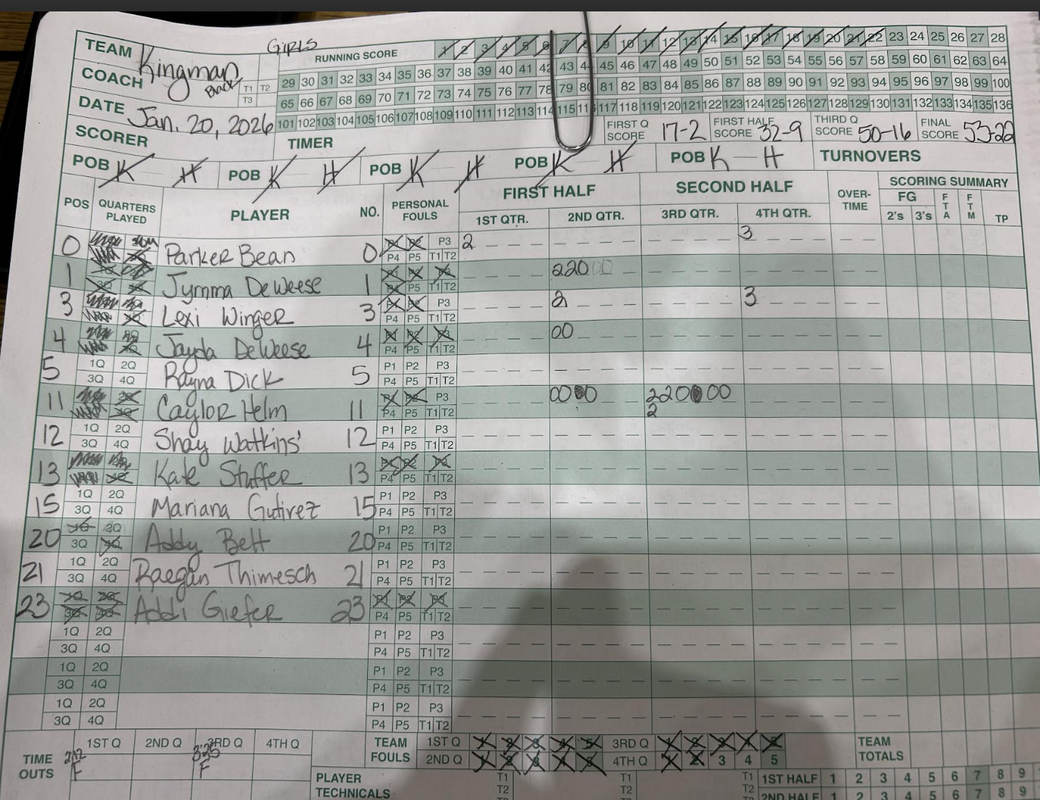 GIRLS
TEAM Kingman
RUNNING SCORE 1 2 3 4 5 6 7 8 9 10 11 12 13 14 15 16 17 18 19 20 21 22 23 24 25 26 27 28
COACH T1 T2 29 30 31 32 33 34 35 36 37 38 39 40 41 42 43 44 45 46 47 48 49 50 51 52 53 54 55 56 57 58 59 60 61 62 63 64
T3 65 66 67 68 69 70 71 72 73 74 75 76 77 78 79 80 81 82 83 84 85 86 87 88 89 90 91 92 93 94 95 96 97 98 99 100
DATE Jan. 20, 2026 101 102 103 104 105 106 107 108 109 110 111 112 113 114 115 116 117 118 119 120 121 122 123 124 125 126 127 128 129 130 131 132 133 134 135 136
SCORER TIMER FIRST Q SCORE 17-2 FIRST HALF SCORE 32-9 THIRD Q SCORE 50-16 FINAL SCORE 53-22
POB K H POB K H POB K H POB K H POB K - H TURNOVERS
POS QUARTERS PLAYED PLAYER NO. PERSONAL FOULS FIRST HALF SECOND HALF OVER-TIME SCORING SUMMARY
1ST QTR. 2ND QTR. 3RD QTR. 4TH QTR. FG 2's 3's FTA FTM TP
0 Parker Bean 0 P1 P2 P3 2 3
P4 P5 T1 T2
1 Jymma DeWeese 1 P5 T1 T2 220
3 Lexi Winger 3 P3 2 3
P5 T1 T2
4 Jayda DeWeese 4 00
P4 P5 T1 T2
5 1Q 2Q Rayna Dick 5 P1 P2 P3
3Q 4Q P4 P5 T1 T2
11 Caylor Helm 11 P3 0000 220000
P4 P5 T1 T2 2
12 1Q 2Q Shay Watkins' 12 P1 P2 P3
3Q 4Q P4 P5 T1 T2
13 Kate Stuffer 13
P4 P5 T1 T2
15 1Q 2Q Mariana Gutirez 15 P1 P2 P3
3Q 4Q P4 P5 T1 T2
20 1Q 2Q Addy Belt 20 P1 P2 P3
3Q 4Q P4 P5 T1 T2
21 1Q 2Q Raegan Thimesch 21 P1 P2 P3
3Q 4Q P4 P5 T1 T2
23 1Q 2Q Addi Giefer 23 P1 P2 P3
3Q 4Q P4 P5 T1 T2
1Q 2Q P1 P2 P3
3Q 4Q P4 P5 T1 T2
1Q 2Q P1 P2 P3
3Q 4Q P4 P5 T1 T2
1Q 2Q P1 P2 P3
3Q 4Q P4 P5 T1 T2
TIME OUTS 1ST Q 2ND Q 3RD Q 4TH Q
F 3:25 F
TEAM FOULS 1ST Q 1 2 3 4 5 3RD Q 1 2 3 4 5
2ND Q 1 2 3 4 5 4TH Q 1 2 3 4 5
TEAM TOTALS
PLAYER TECHNICALS T1 T1 T1
T2 T2 T2
1ST HALF 1 2 3 4 5 6 7 8 9
2ND HALF 1 2 3 4 5 6 7 8 9